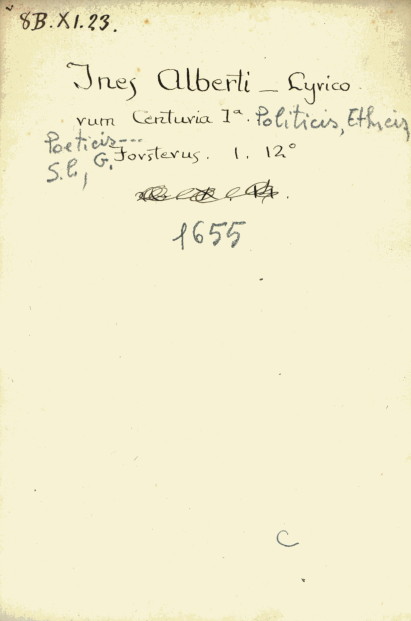 8B.XI.23.
Ines Alberti – Lyrico
rum Centuria Iª. Politicis, Ethicis,
Poeticis---
S.l., G. Forsterus. 1. 12°
1655
C